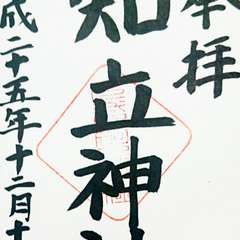 奉拝
知立神社
成二十五年十二月十